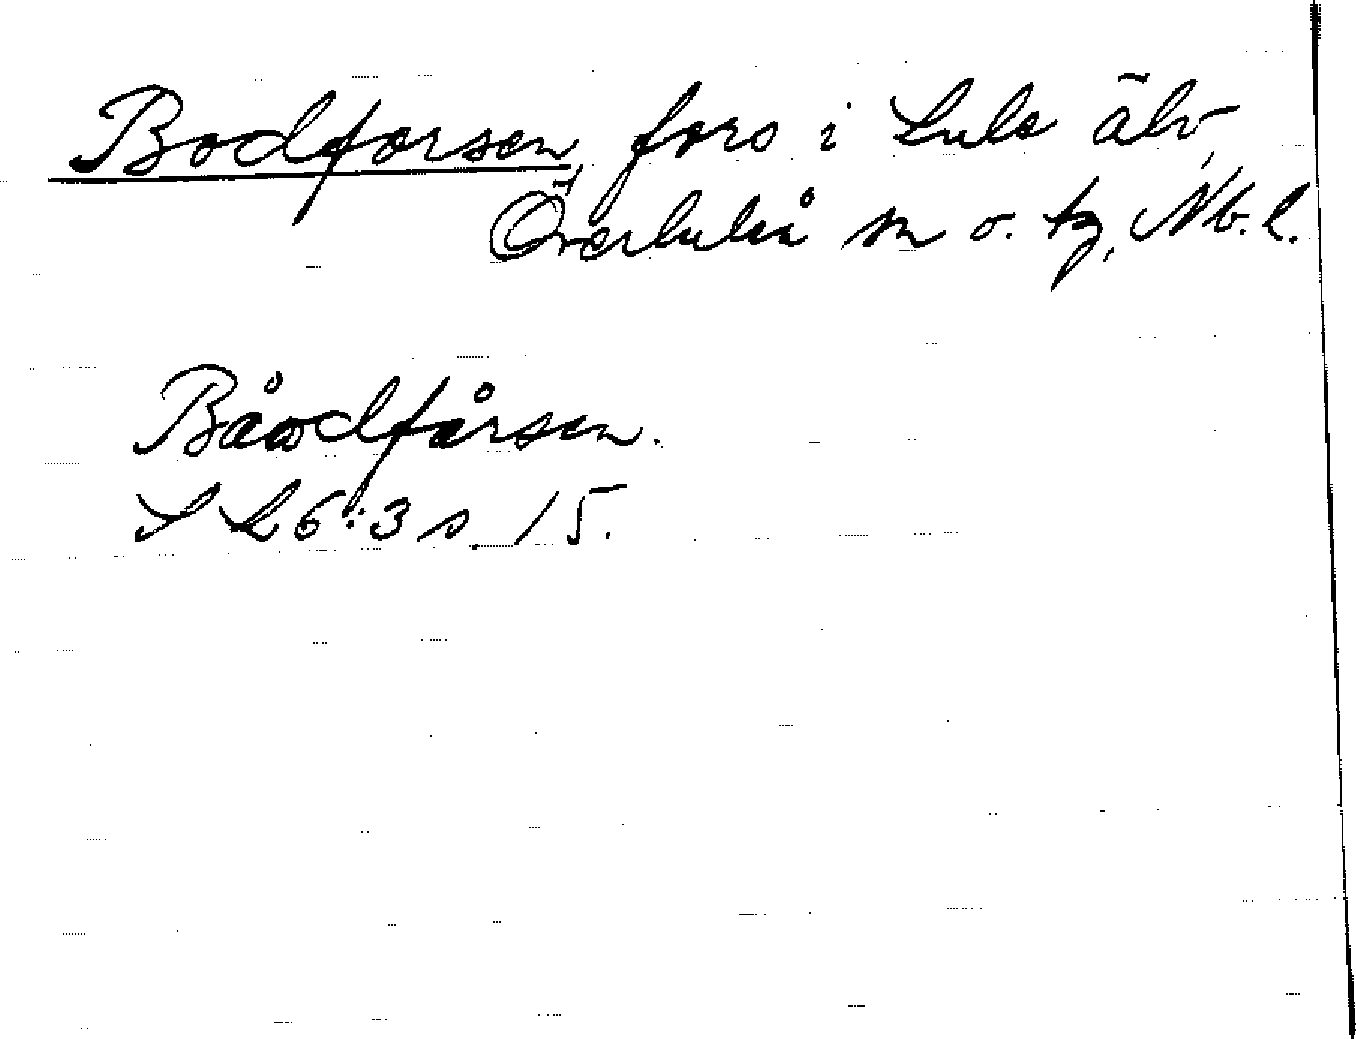 Bodforsen, fors i Lule älv,
Överluleå sn o. tg, Nb. l.
Båodfårsen.
S L 6:3 s. 15.